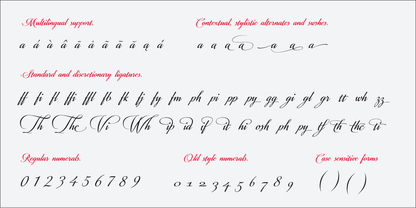 Multilingual support.
a á à â ä å ā ã ă ą ả
Contextual, stylistic alternates and swshes.
a a a a a a a
Standard and discretionary ligatures.
ff fi fl ffi ffl fb fk fj fy fm ph pi pp py gg gi gl gr tt wh zz
Th The Vi Wh ip id if it hi osh ph py tf th the ti
Regular numerals.
0 1 2 3 4 5 6 7 8 9
Old style numerals.
0 1 2 3 4 5 6 7 8 9
Case sensitive forms
( ) ( )